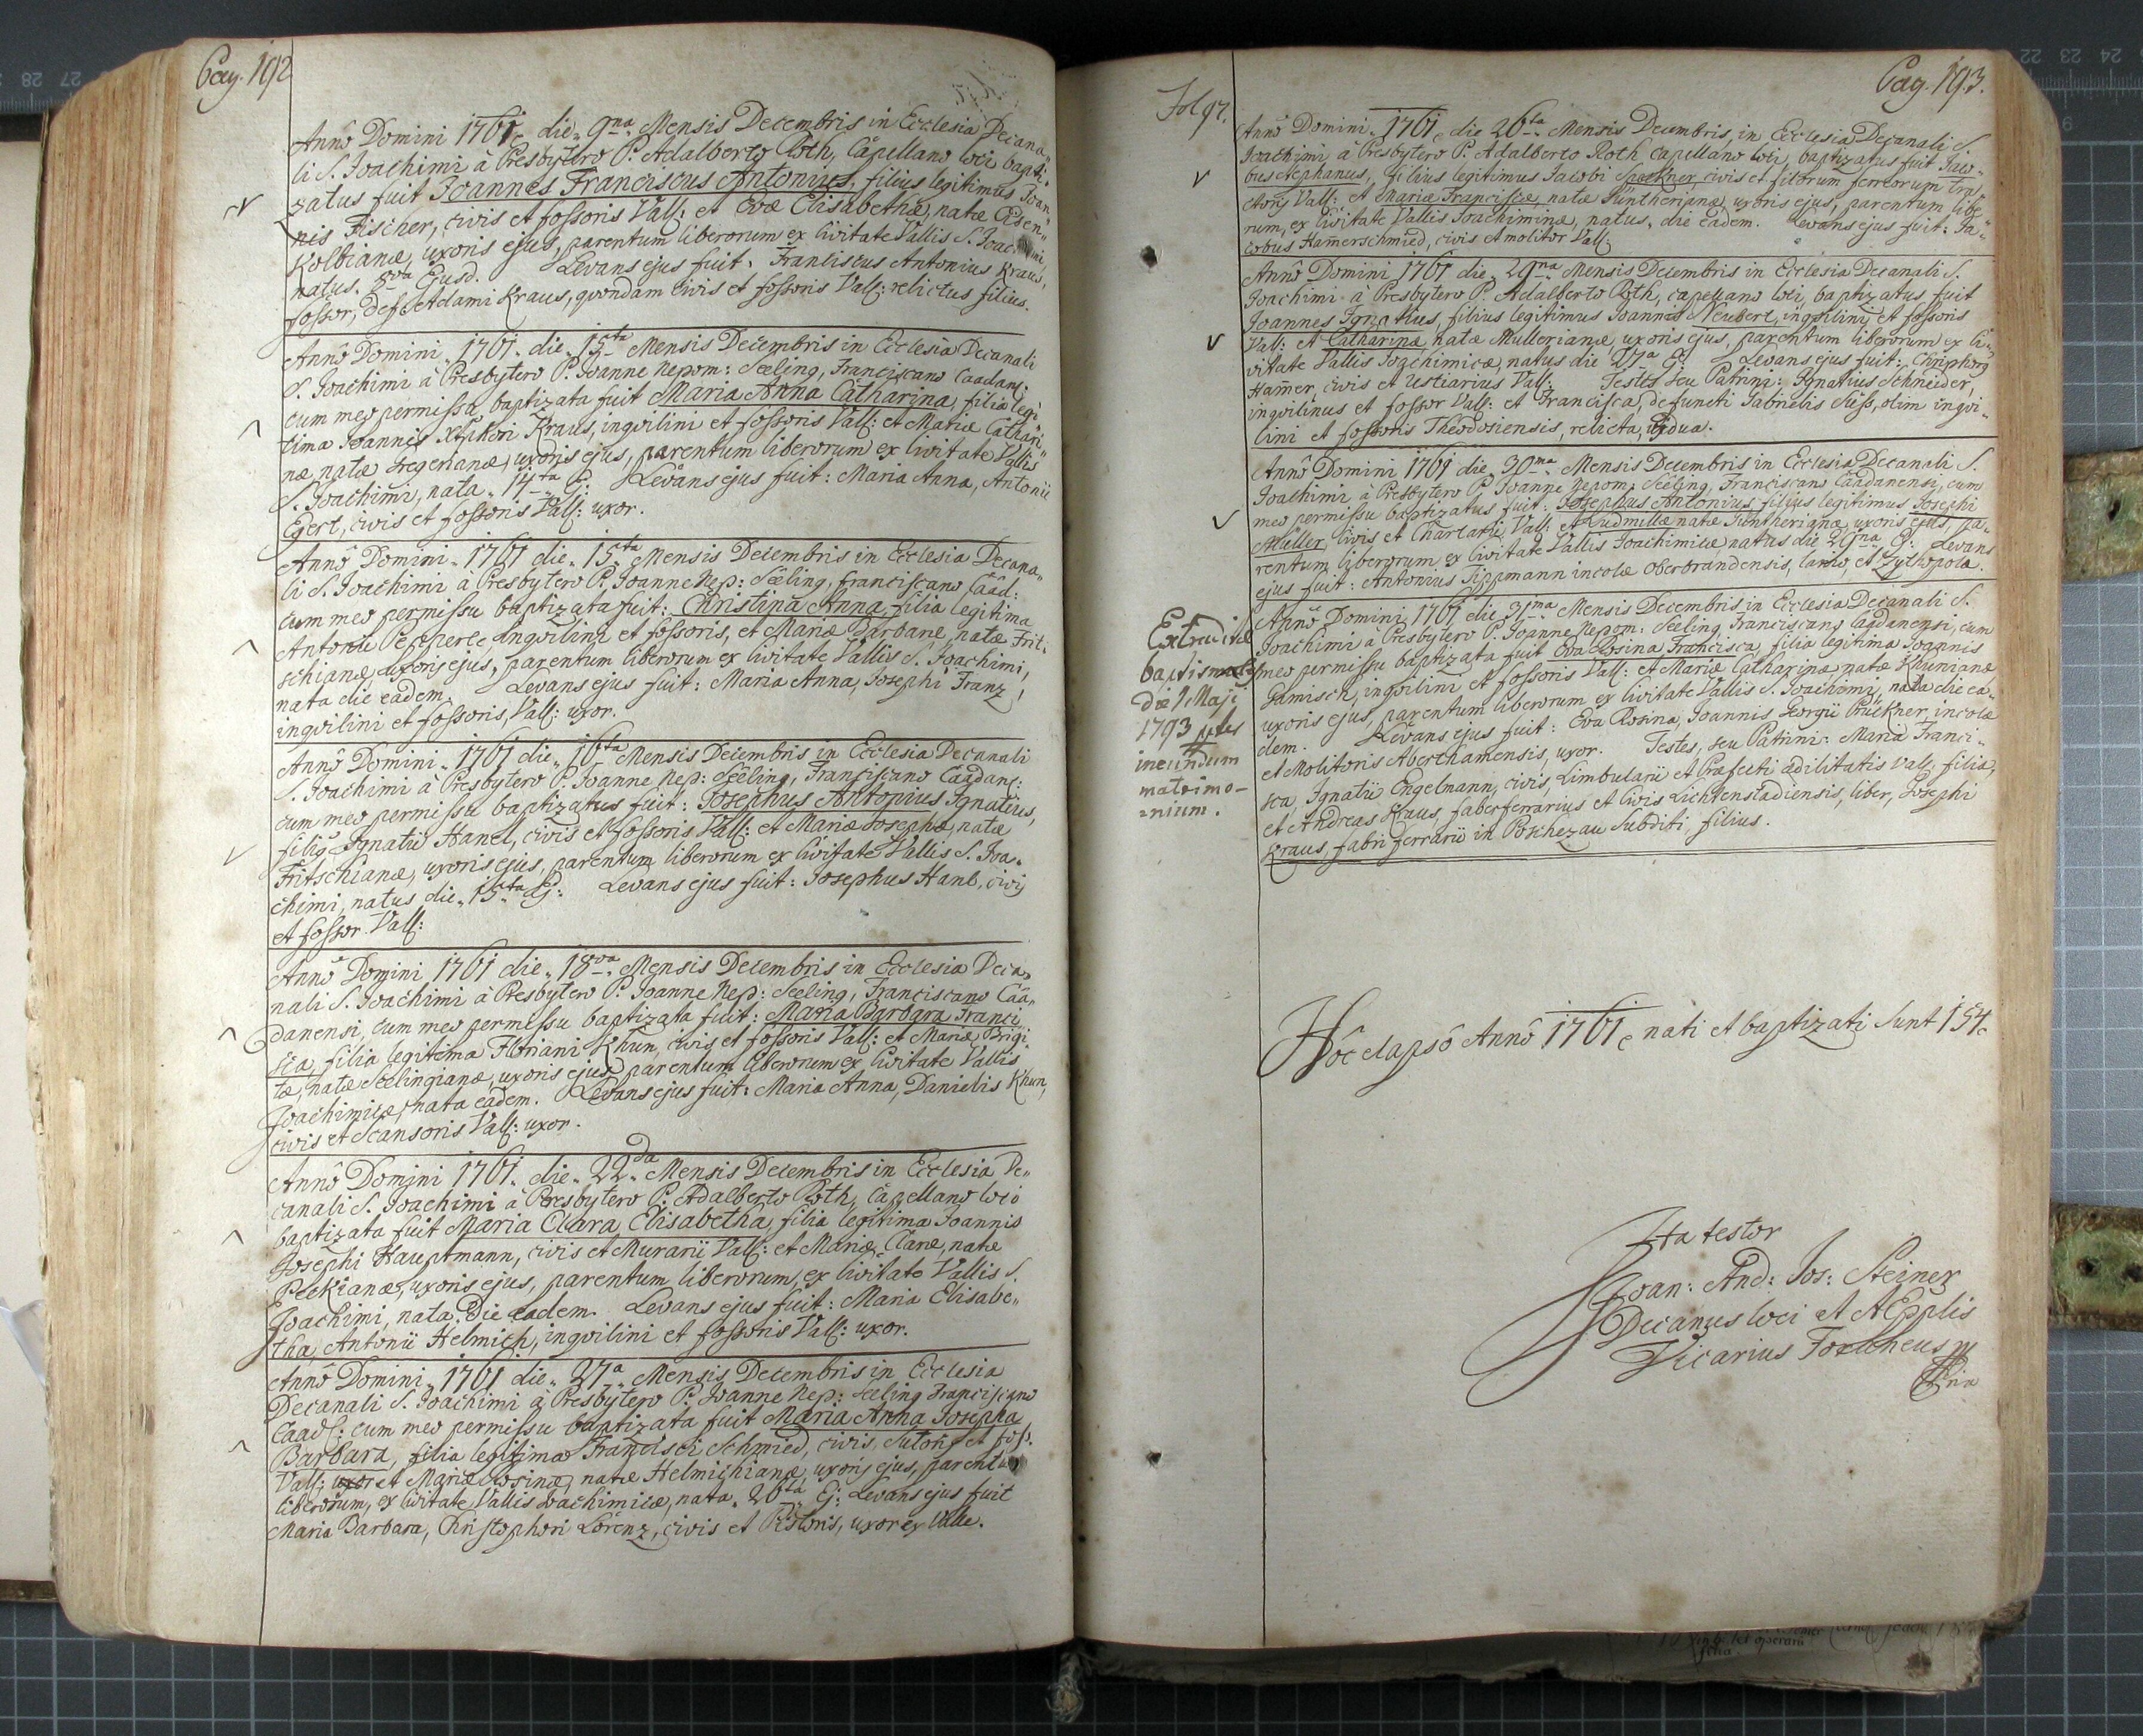 Pag. 192
Anno Domini 1761. die 9na Mensis Decembris in Ecclesia Decana„
li S. Joachimi â Presbytero P. Adalberto Roth, Capellano loci bapti„
zatus fuit Joannes Franciscus Antonius, filius legitimus Joan„
nis Fischer, civis et fossoris Vall: et Evæ Elisabethæ, natæ
Kolbianæ, uxoris ejus, parentum liberorum ex Civitate Vallis S.
natus. 8va Ejusd. Levans ejus fuit. Franciscus Antonius Kraus,
fossor, def: Adami Kraus, quondam civis et fossoris Vall: relictus filius.
Anno Domini „1761. die„ 15ta Mensis Decembris in Ecclesia Decanali
S. Joachimi â Presbytero P. Joanne Nepom: Seeling, Franciscano Caadan:
cum meo permissu baptizata fuit Maria Anna Catharina, filia legi„
tima Joannis Xstphori Kraus, inqvilini et fossoris Vall: et Mariæ Cathari„
næ, natæ Gregerianæ, uxoris ejus, parentum liberorum ex Civitate Vallis
S. Joachimi, nata. 14ta Ej: Levans ejus fuit: Maria Anna, Antonii
Egert, civis et fossoris Vall: uxor.
Anno Domini„ 1761 die„ 15ta Mensis Decembris in Ecclesia Decana„
li S. Joachimi â Presbytero P. Joanne Nep: Seeling, franciscano Caad:
cum meo permissu baptizata fuit: Christina Anna, filia legitima
Antonii inqvilini et fossoris, et Mariæ Barbaræ, natæ Frit„
schianæ, uxoris ejus, parentum liberorum ex Civitate Vallis S. Joachimi,
nata die eadem. Levans ejus fuit: Maria Anna, Josephi Franz,
inqvilini et fossoris, Vall: uxor.
Anno Domini„ 1761 die„ 16ta Mensis Decembris in Ecclesia Decanali
S. Joachimi â Presbytero P. Joanne Nep: Seeling, Franciscano Caadan:
cum meo permissu baptizatus fuit: Josephus Antonius Ignatius,
filiꝰ Ignatii Hanel, civis et fossoris Vall: et Mariæ Josephæ, natæ
Fritschianæ, uxoris ejus, parentum liberorum ex Civitate Vallis S. Joa„
chimi, natus die„ 15ta Ej: Levans ejus fuit: Josephus Hanl, civis
et fossor Vall:
Anno Domini 1761 die„ 18va„ Mensis Decembris in Ecclesia Deca„
nali S. Joachimi â Presbytero P. Joanne Nep: Seeling, Franciscano Caa„
danensi, cum meo permissu baptizata fuit: Maria Barbara Franci
sca, filia legitima Floriani Khun, civis et fossoris Vall: et Mariæ Brigi„
tæ, natæ Seelingianæ, uxoris ejus, parentum liberorum ex Civitate Vallis
Joachimicæ, nata eadem. Levans ejus fuit: Maria Anna, Danielis Khun,
civis et Scansoris Vall: uxor.
Anno Domini 1761. die. 22da Mensis Decembris in Ecclesia De„
canali S. Joachimi â Presbytero P. Adalberto Roth, Capellano loci
baptizata fuit Maria Clara Elisabetha, filia legitima Joannis
Josephi Hauptmann, civis et Murarii Vall: et Mariæ Claræ, natæ
Peckianæ, uxoris ejus, parentum liberorum, ex Civitate Vallis S.
Joachimi, nata. Die eadem. Levans ejus fuit: Maria Elisabe„
tha, Antonii Helmich, inqvilini et fossoris Vall: uxor.
Anno Domini„ 1761 die„ 27a„ Mensis Decembris in Ecclesia
Decanali S. Joachimi â Presbytero P. Joanne Nep: Seeling Franciscano
Caad: cum meo permissu baptizata fuit Maria Anna Josepha
Barbara, filia legitima Francisci Schmied, civis, Sutoris et foss.
Vall: uxor et Mariæ Rosinæ, natæ Helmichianæ, uxoris ejus, parentum
liberorum, ex Civitate Vallis Joachimicæ, nata„ 26ta„ Ej: Levans ejus fuit
Maria Barbara, Christophori Lorenz, civis et Pistoris, uxor ex Valle.
Pag. 193.
Fol 97.
Anno Domini„ 1761 die 26ta„ Mensis Decembris, in Ecclesia Decanali S.
Joachimi â Presbytero P. Adalberto Roth Capellano loci, baptizatus fuit Jaco„
bus Stephanus, filius legitimus Jacobi civis et filorum ferreorum
Vall: et Mariæ Franciscæ, natæ Güntherianæ, uxoris ejus, parentum libe„
rum, ex Civitate Vallis Joachiminæ, natus. die eadem. Levans ejus fuit: Ja„
cobus Ham̄erschmied, civis et molitor Vall:
Anno Domini 1761 die„ 29na Mensis Decembris in Ecclesia Decanali S.
Joachimi â Presbytero P. Adalberto Roth, capellano loci, baptizatus fuit
Joannes Ignatius, filius legitimus Joannis Neubert, inqvilini, et fossoris
Vall: et Catharinæ, natæ Mullerianæ, uxoris ejus, parentum liberorum ex Ci„
vitate Vallis Joachimicæ, natus die 27a ej: Levans ejus fuit: Christphorꝰ
Ham̄er, civis et Vestiarius Vall: Testes seu Patrini: Ignatius Schneider,
inqvilinus et fossor Vall: et Francisca, defuncti Gabrielis Süss, olim inqvi„
lini et fossoris Theodosiensis, relicta, vidua.
Anno Domini 1761 die„ 30ma„ Mensis Decembris in Ecclesia Decanali S.
Joachimi â Presbytero P. Joanne Nepom: Seeling, Franciscano Caadanensi, cum
meo permissu baptizatus fuit: Josephus Antonius filius legitimus Josephi
Müller, civis et Chartarii, Vall: et Ludmillæ natæ Güntherianæ, uxoris ejus, pa„
rentum liberorum, ex Civitate Vallis Joachimicæ, natus die 29na ej: Levans
ejus fuit: Antonius Tippmann incola Oberbrandensis, lanio, et Zythopola.
Extradit
baptismales
die 1 Maji
1793
ineundum
matrimo-
nium.
Anno Domini 1761 die„ 31ma„ Mensis Decembris in Ecclesia Decanali S.
Joachimi â Presbytero P. Joanne Nepom: Seeling Franciscano Caadanensi, cum
meo permissu baptizata fuit Eva Rosina Francisca, filia legitima Joannis
Gamisch, inqvilini et fossoris Vall: et Mariæ Catharinæ, natæ Khunianæ
uxoris ejus, parentum liberorum ex Civitate Vallis S. Joachimi, nata die ea„
dem. Levans ejus fuit: Eva Rosina, Joannis Georgii Prückner, incolæ
et Molitoris Aberthamensis, uxor. Testes, seu Patrini: Maria Franci„
sca, Ignatii Engelmann, civis, Limbularii et Præfecti ædilitatis Vall: filia,
et Andreas Kraus, faber ferrarius et civis Lichtenstadiensis, liber, Josephi
Kraus, fabri ferrarii in Poschezau Subditi, filius.
Hôc elapsô Annô 1761 nati et baptizati Sunt 154.
Ita testor
Joan: And: Jos: Steiner
Decanus loci et AEpplis
Vicarius Foraneus